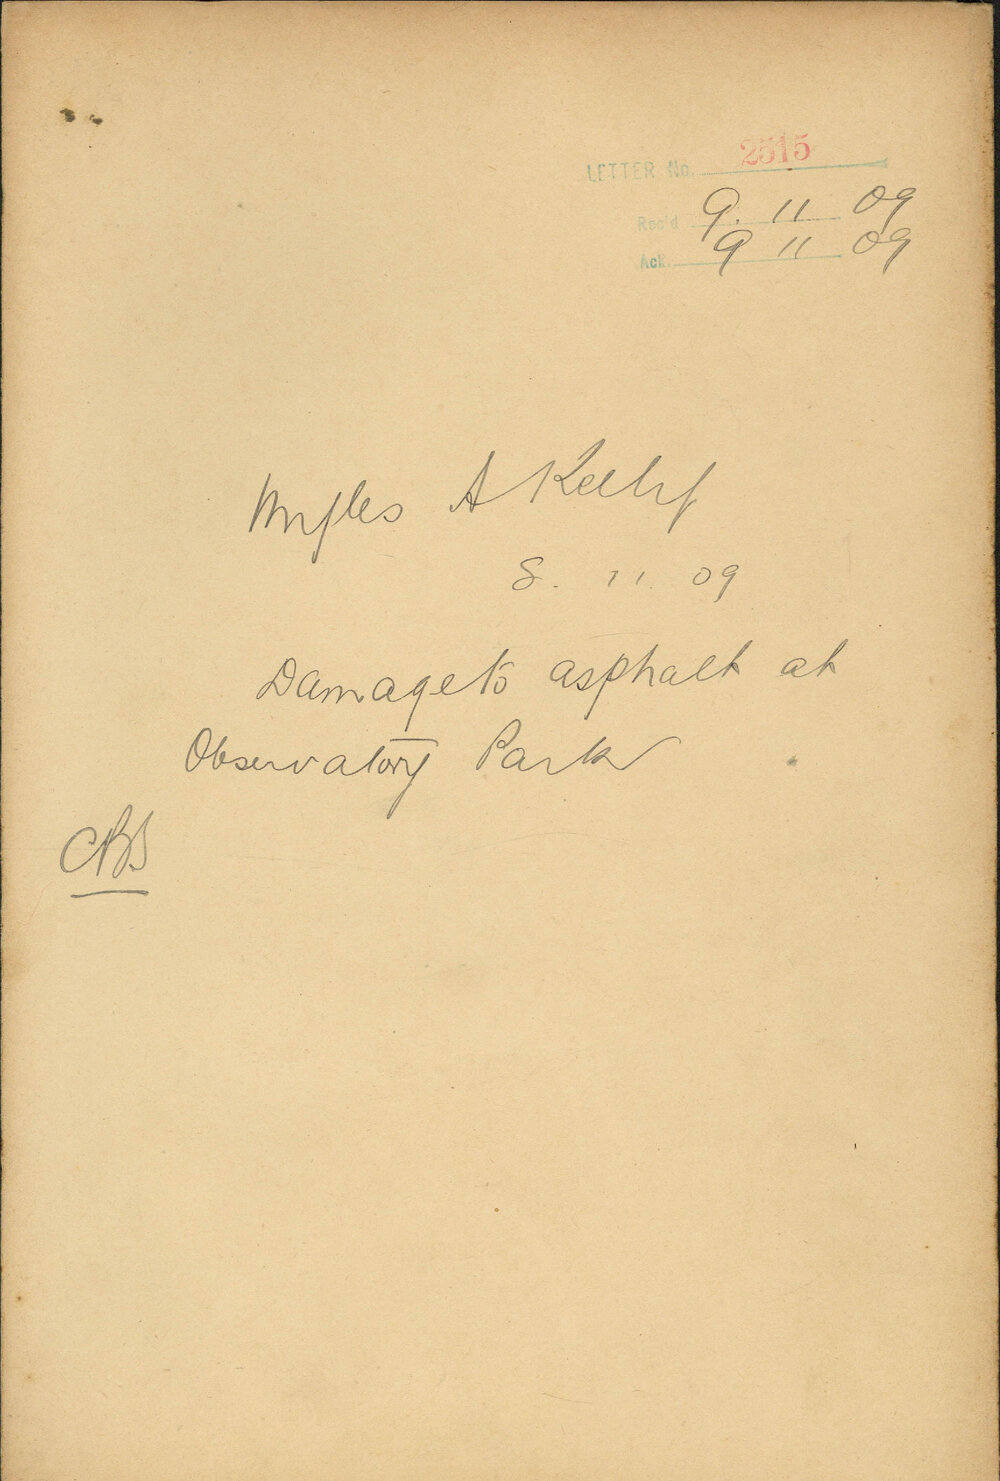 LETTER No. 2515
Rec'd 9. 11 09
Ack. 9 11 09
Myles A Kelly
8. 11. 09
Damage to asphalt at
Observatory Park